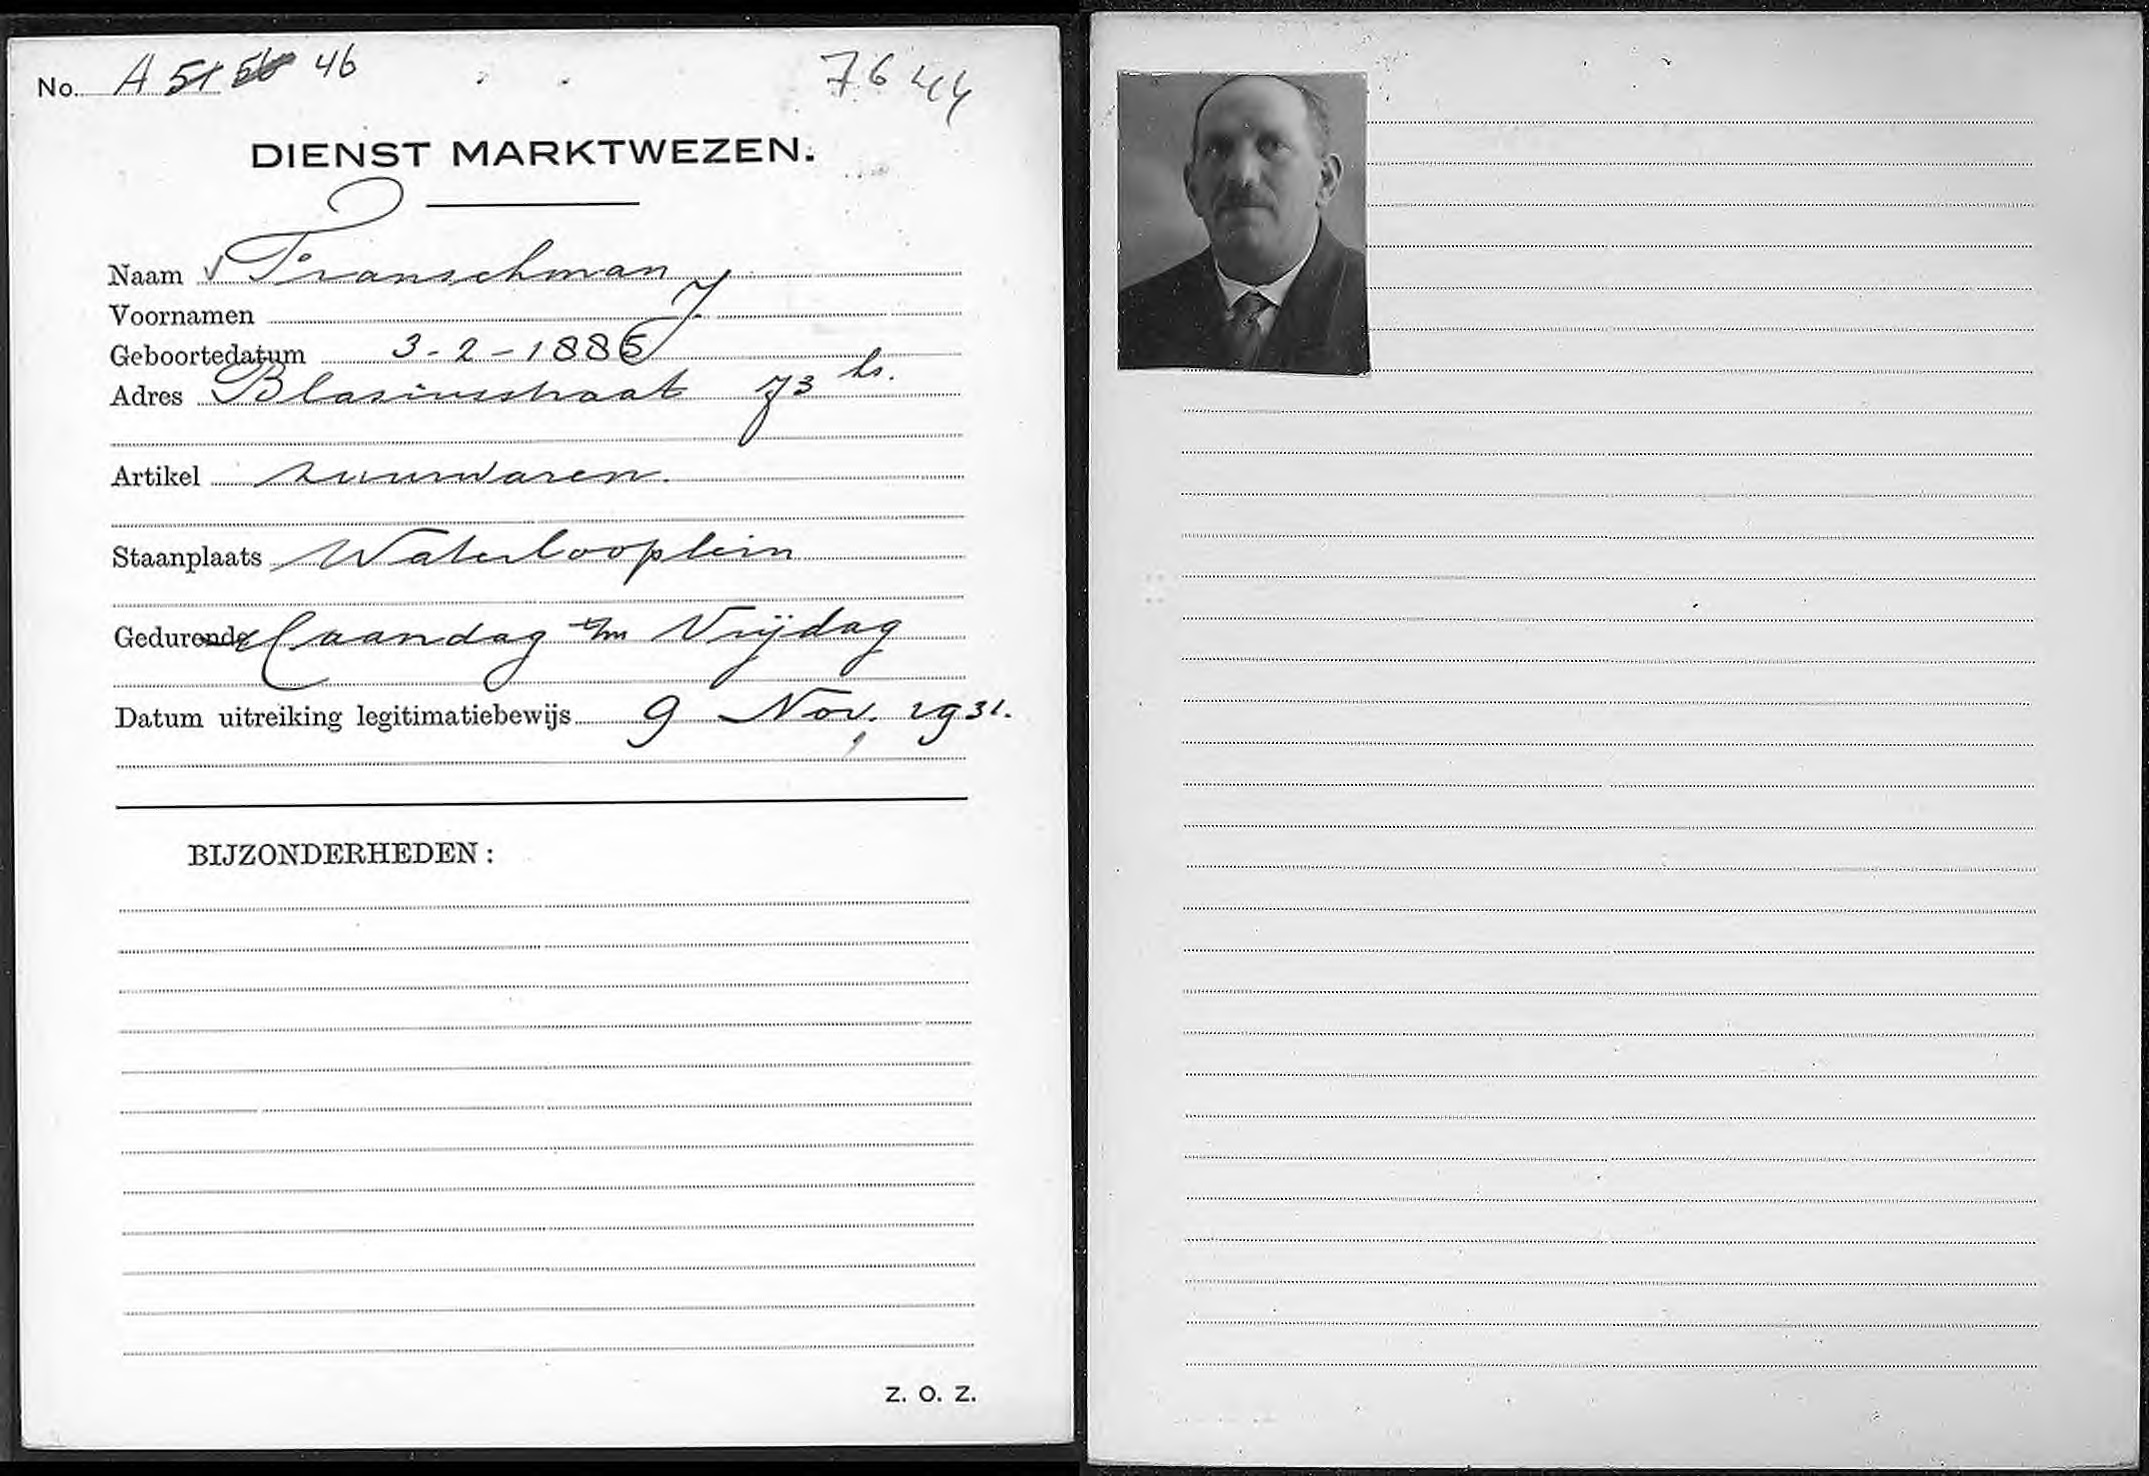 No. A 51 56 46 7644
DIENST MARKTWEZEN.
Naam Franschman
Voornamen J.
Geboortedatum 3-2-1886
Adres Blasiusstraat 73 hs.
Artikel zuurwaren.
Staanplaats Waterlooplein
Gedurende Maandag t/m Vrijdag
Datum uitreiking legitimatiebewijs 9 Nov. 1931.
BIJZONDERHEDEN:
Z. O. Z.